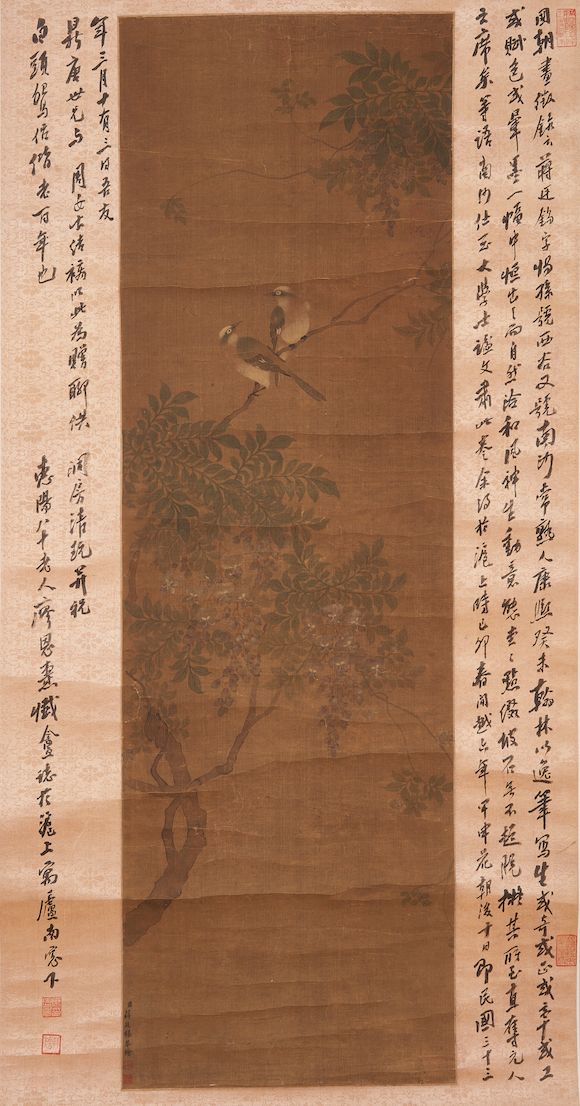 國朝畫徵錄云蔣廷錫字揚孫號西谷又號南沙常熟人康熙癸未翰林以逸筆寫生或奇或正或率或工
或賦色或暈墨一幅中恒出之而自然洽和風神生動意態堂堂點綴坡石無不超脫擬其所至直奪元人
之席矣等語南沙仕至大學士謚文肅此卷余得於滬上時己卯春閒越六年甲申花朝後十日即民國三十三
年三月十有三日吾友
鼎康世兄与周女士結褵以此為贈聊供洞房清玩并祝
白頭鴛侶偕老百年也
惠陽八十老人廖恩燾懺盦誌於滬上寓廬南窗下
蔣廷錫恭繪